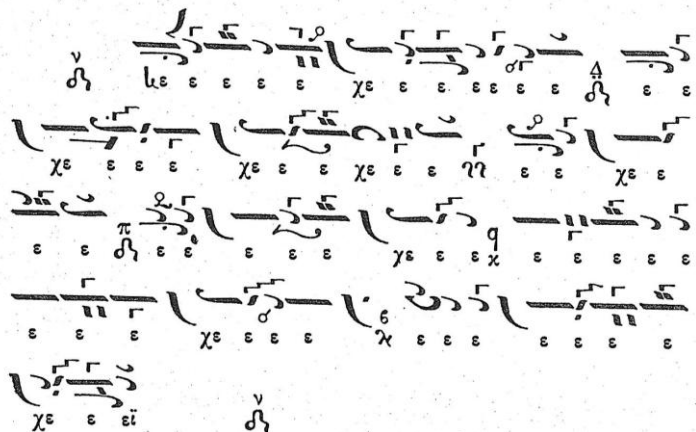 ν κε ε ε ε ε χε ε ε ε ε ε ε Δ ε ε
χε ε ε ε χε ε ε χε ε ε γγ ε ε χε ε
ε ε π ε ε ε ε ε χε ε ε q ϰ ε ε ε ε ε
ε ε ε χε ε ε ε ε ε ε ε ε ε ε
χε ε εϊ ν